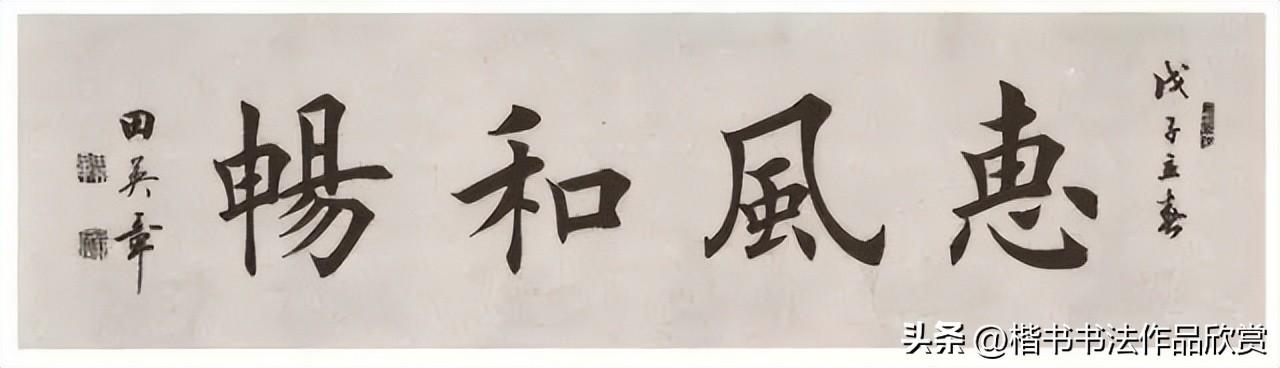 戊子立春
惠風和暢
田英章
头条 @楷书书法作品欣赏